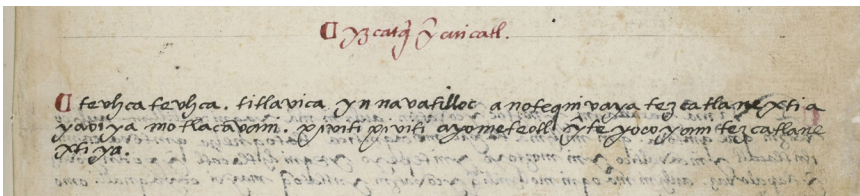 ¶ yzcatq̄ ȳ cuicatl.
¶ teuhca teuhca. titlauica yn nauatilloc a notequiuaya tezcatlanextia
yaoiya motlacauani. xiuiti xiuiti ayometeotl ȳte yocoyani tezcatlane
xtiya.